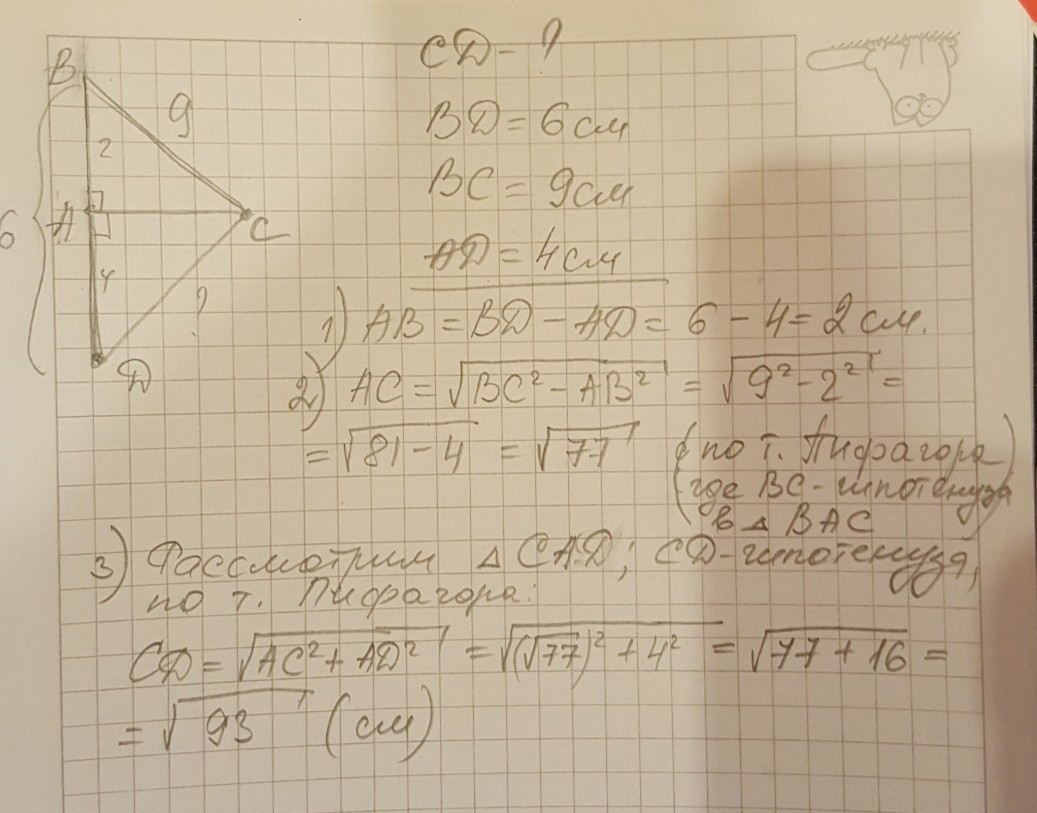 CD - ?
B
9
BD = 6 см
2
BC = 9 см
6
A
C
AD = 4 см
4
?
D
1) AB = BD - AD = 6 - 4 = 2 см.
2) AC = √(BC² - AB²) = √(9² - 2²) =
= √(81 - 4) = √77 (по т. Пифагора
где BC - гипотенуза
в △ BAC)
3) Рассмотрим △ CAD; CD - гипотенуза,
по т. Пифагора:
CD = √(AC² + AD²) = √((√77)² + 4²) = √(77 + 16) =
= √93 (см)